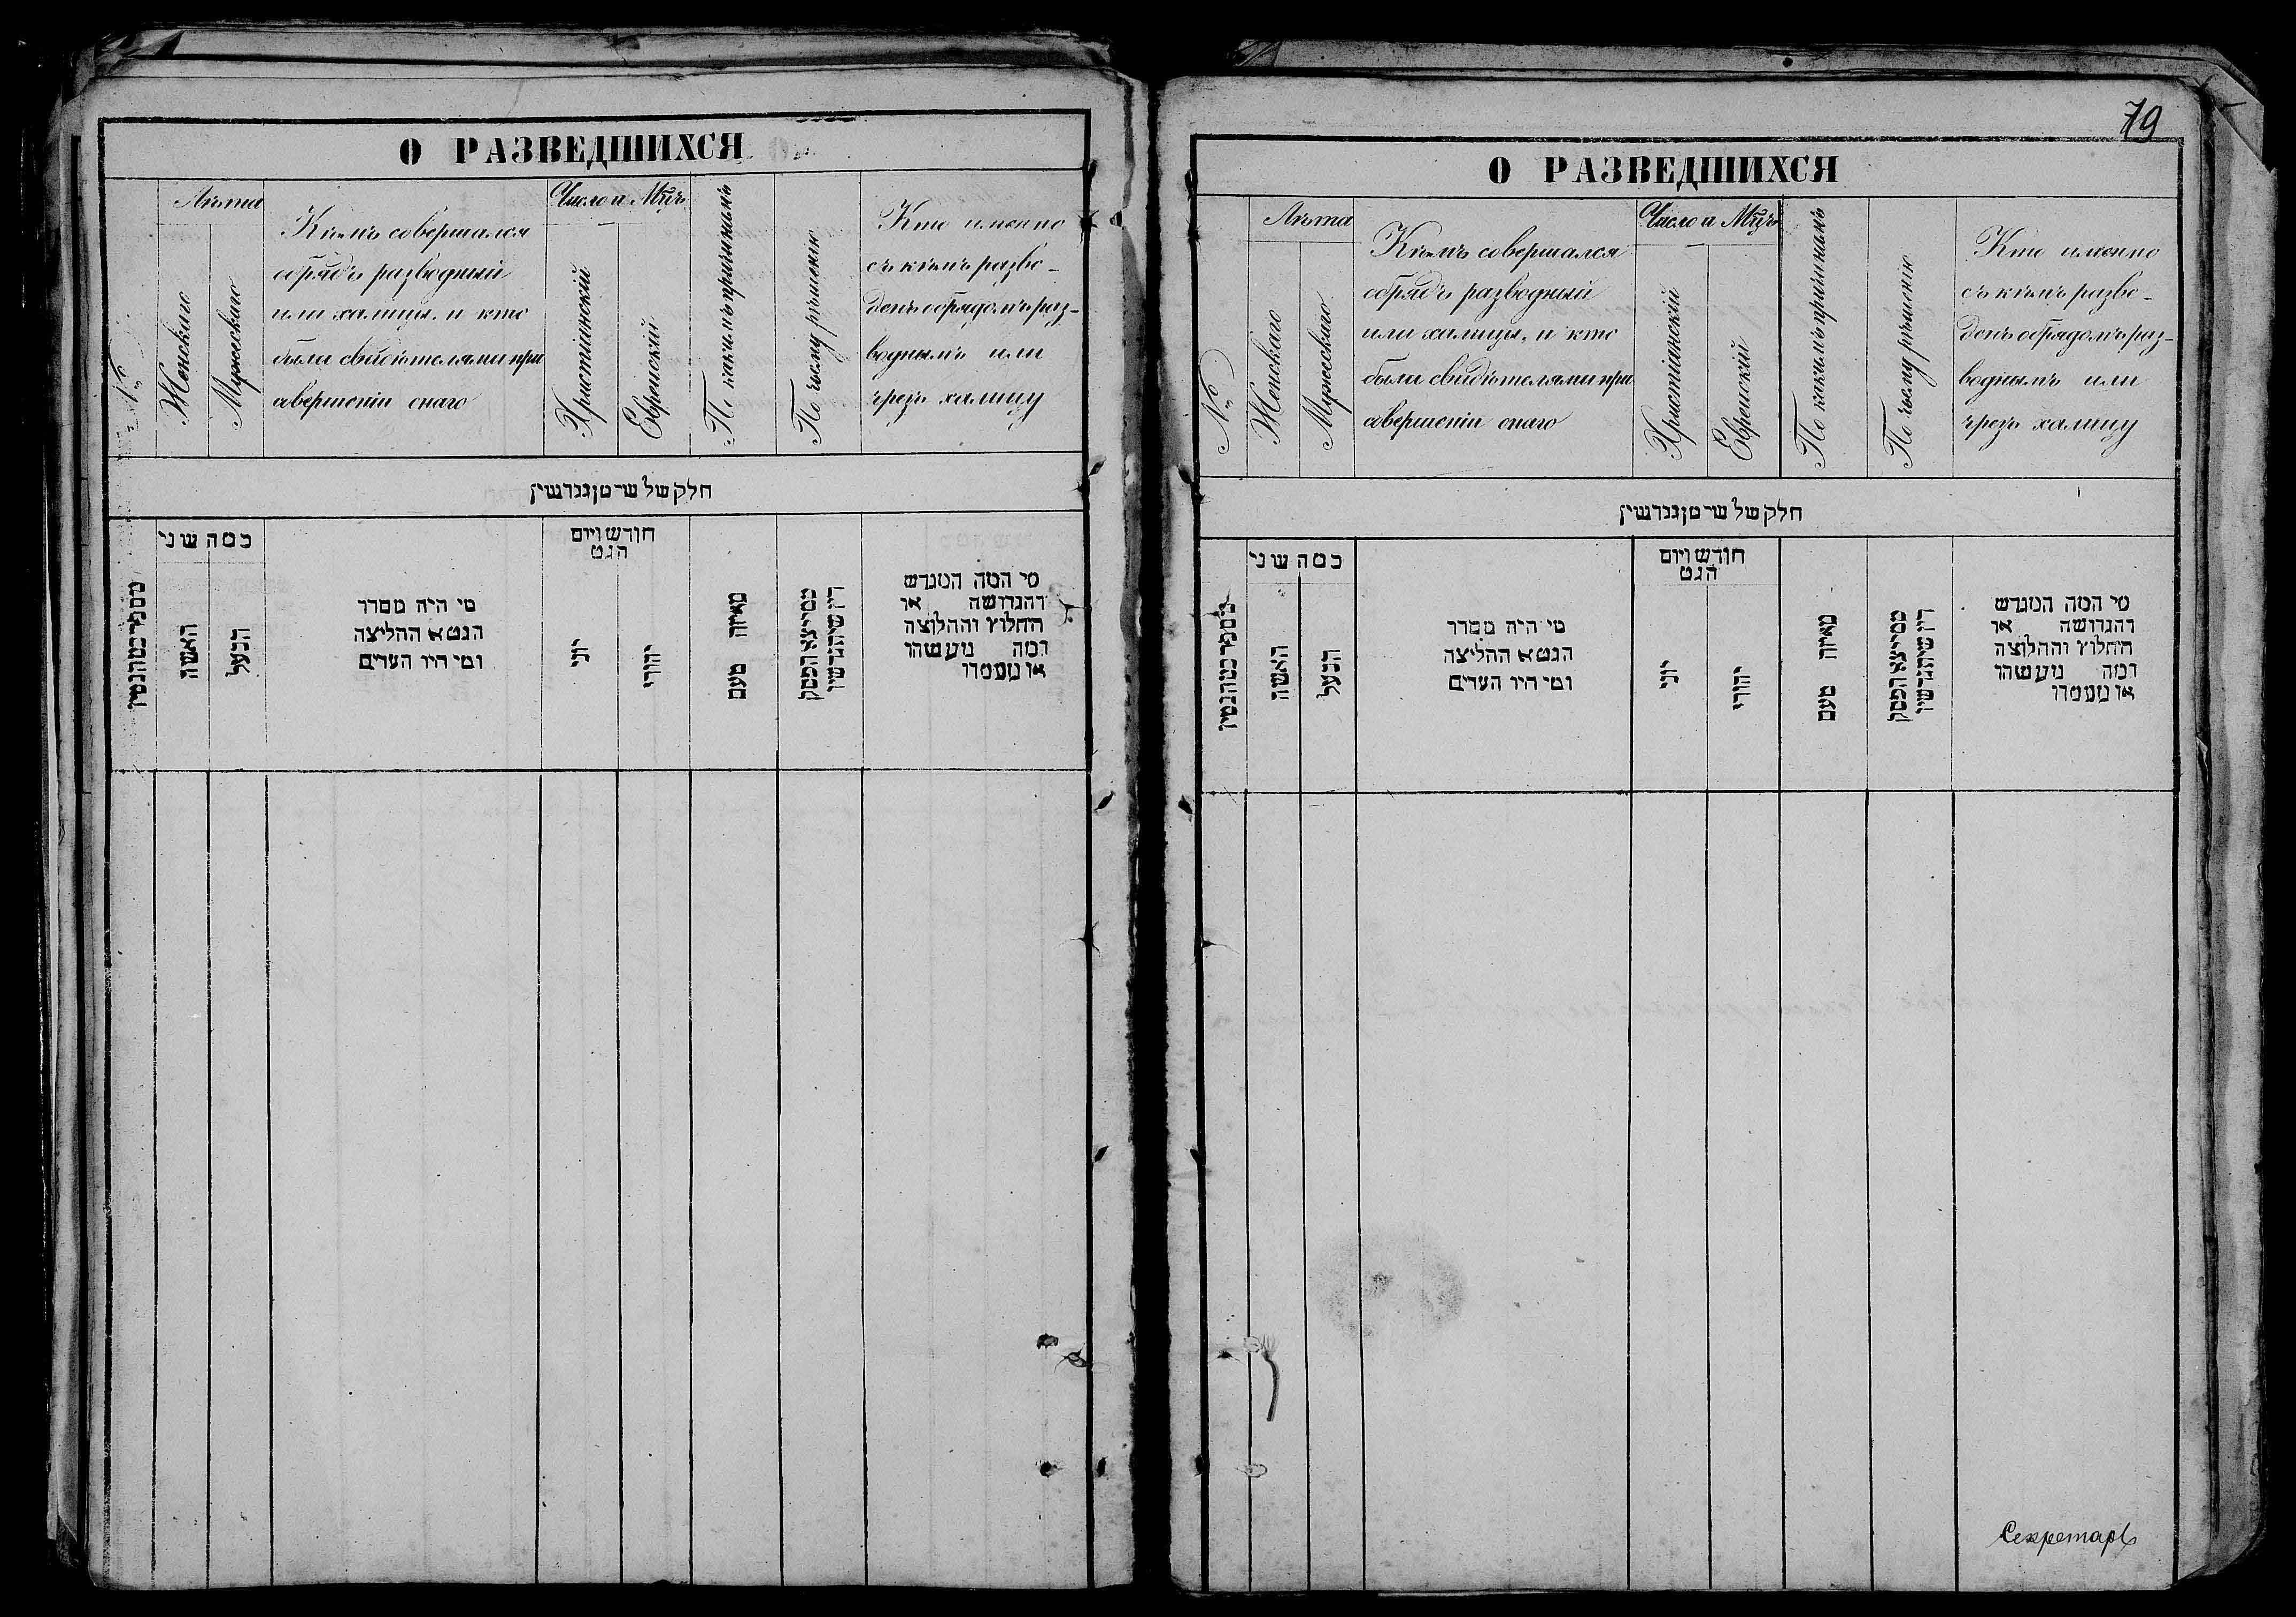 О РАЗВЕДШИХСЯ
№
Лѣта
Женскаго
Мужескаго
Кѣмъ совершался
обрядъ разводный
или халицы, и кто
были свидѣтелями при
совершеніи онаго
Число и Мѣцъ
Христіанскій
Еврейскій
По какимъ причинамъ
По чьему рѣшенію
Кто именно
съ кѣмъ разве-
денъ обрядомъ раз-
воднымъ или
чрезъ халицу
חלק שלישי מן גרושין
כמה שני
האשה
הבעל
מי היה מסדר
הגט או החליצה
ומי היו העדים
חודש ויום
הגט
יוני
יהודי
מאיזה טעם
ממי יצא הפסק
דין שיתגרשו
מי המה המגרש
והגרושה או
החלוץ והחלוצה
ומה מעשהו
או מעמדו
79
О РАЗВЕДШИХСЯ
№
Лѣта
Женскаго
Мужескаго
Кѣмъ совершался
обрядъ разводный
или халицы, и кто
были свидѣтелями при
совершеніи онаго
Число и Мѣцъ
Христіанскій
Еврейскій
По какимъ причинамъ
По чьему рѣшенію
Кто именно
съ кѣмъ разве-
денъ обрядомъ раз-
воднымъ или
чрезъ халицу
חלק שלישי מן גרושין
כמה שני
האשה
הבעל
מי היה מסדר
הגט או החליצה
ומי היו העדים
חודש ויום
הגט
יוני
יהודי
מאיזה טעם
ממי יצא הפסק
דין שיתגרשו
מי המה המגרש
והגרושה או
החלוץ והחלוצה
ומה מעשהו
או מעמדו
Секретарь